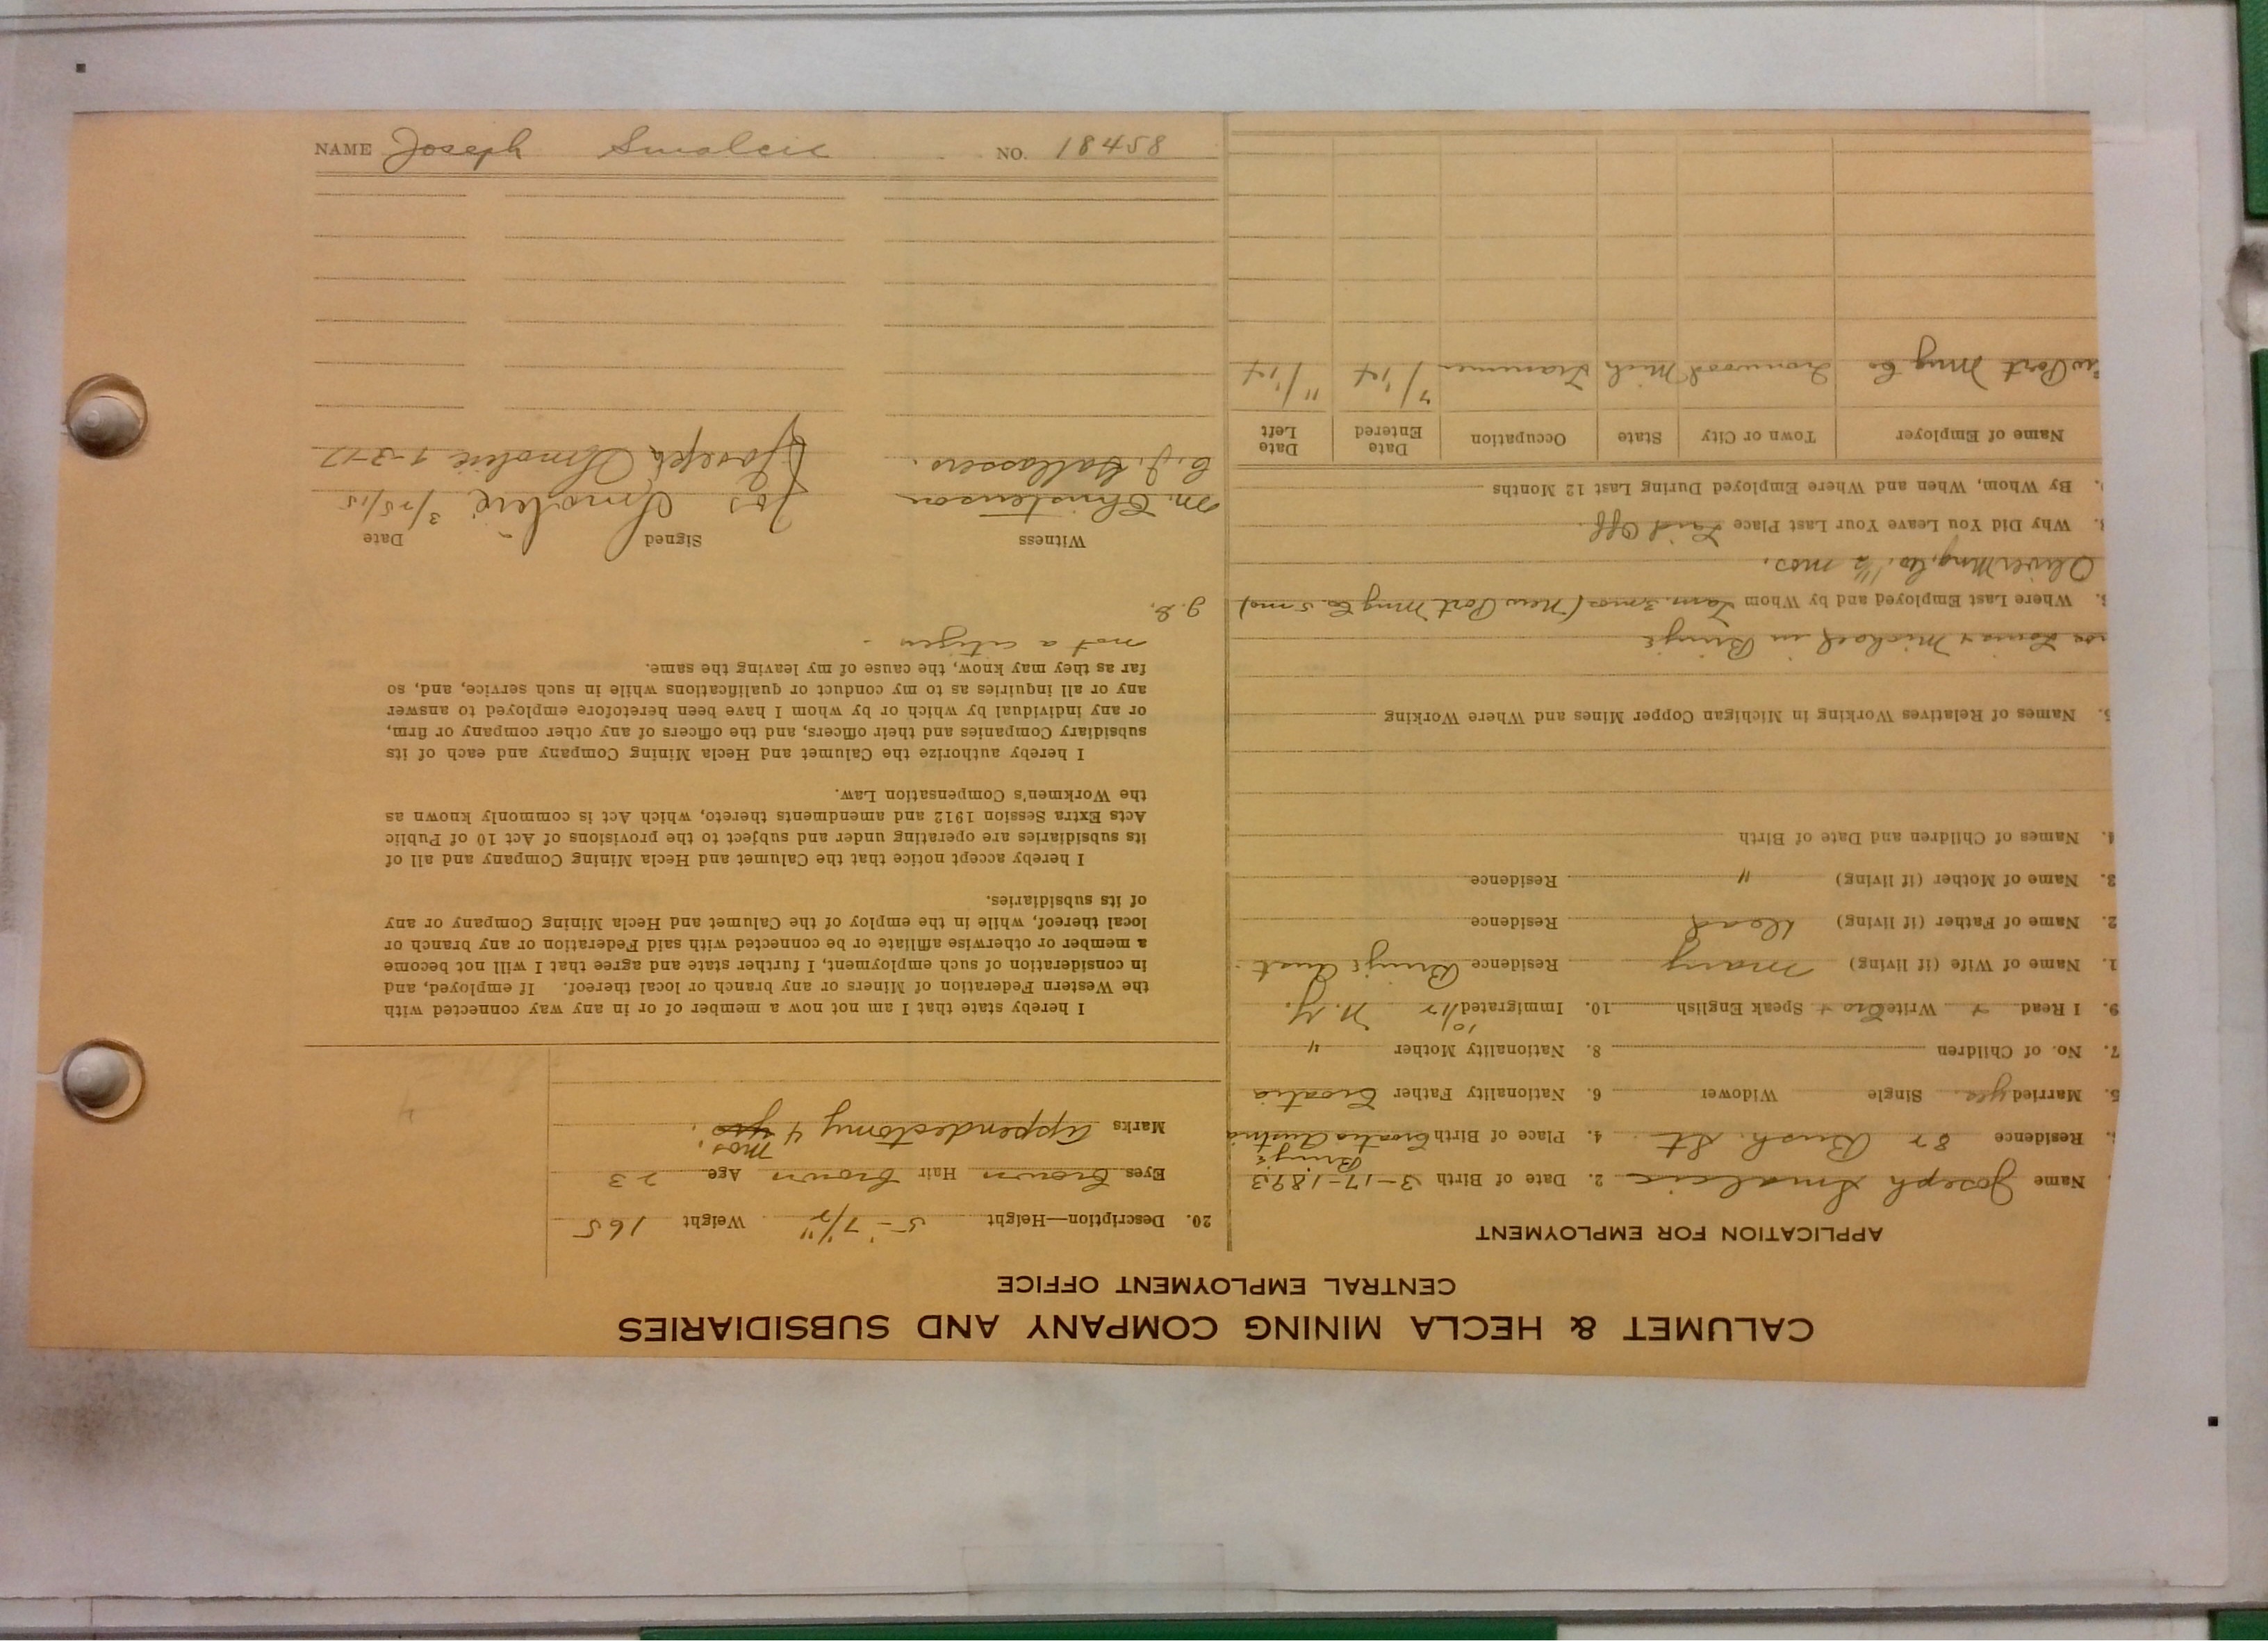 CALUMET & HECLA MINING COMPANY AND SUBSIDIARIES
CENTRAL EMPLOYMENT OFFICE
APPLICATION FOR EMPLOYMENT
Name Joseph Smalcic 2. Date of Birth 3-17-1893
Residence 82 Bush St. 4. Place of Birth Croatia Austria
5. Married yes Single Widower 6. Nationality Father Croatia
7. No. of Children 8. Nationality Mother "
9. I Read + Write Cro + Speak English 10. Immigrated 10/12 N.Y.
1. Name of Wife (if living) Mary Residence Aust.
2. Name of Father (if living) dead Residence
3. Name of Mother (if living) " Residence
4. Names of Children and Date of Birth
5. Names of Relatives Working in Michigan Copper Mines and Where Working
Michael in
Where Last Employed and by Whom Tam. 3 mos (New Port Mng Co. 5 mo)
Oliver Mng. Co. 1 1/2 mos.
Why Did You Leave Your Last Place Laid Off.
By Whom, When and Where Employed During Last 12 Months
Name of Employer Town or City State Occupation Date Entered Date Left
Port Mng Co Ironwood Mich Trammer 7/14 11/14
20. Description—Height 5'-7 1/2" Weight 165
Eyes brown Hair brown Age 23
Marks appendectomy 4 mos.
I hereby state that I am not now a member of or in any way connected with
the Western Federation of Miners or any branch or local thereof. If employed, and
in consideration of such employment, I further state and agree that I will not become
a member or otherwise affiliate or be connected with said Federation or any branch or
local thereof, while in the employ of the Calumet and Hecla Mining Company or any
of its subsidiaries.
I hereby accept notice that the Calumet and Hecla Mining Company and all of
its subsidiaries are operating under and subject to the provisions of Act 10 of Public
Acts Extra Session 1912 and amendments thereto, which Act is commonly known as
the Workmen's Compensation Law.
I hereby authorize the Calumet and Hecla Mining Company and each of its
subsidiary Companies and their officers, and the officers of any other company or firm,
or any individual by which or by whom I have been heretofore employed to answer
any or all inquiries as to my conduct or qualifications while in such service, and, so
far as they may know, the cause of my leaving the same.
not a citizen.
Witness Signed Date
M. Christenson Jos Smolcic 3/25/15
Joseph Smolcic 1-3-17
NAME Joseph Smalcic NO. 18458